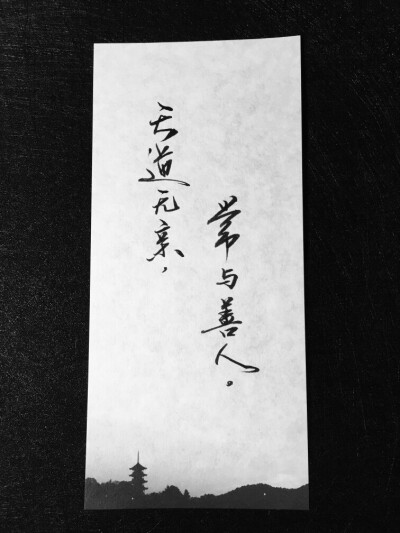 天道无亲，
常与善人。